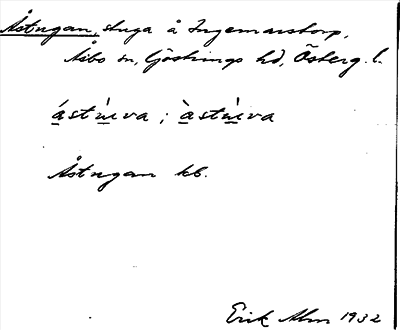 Åstugan, stuga å Ingemarstorp,
Åsbo sn, Göstrings hd, Österg. l.
ástùɩva ; àstùɩva
Åstugan kb.
Erik Alm 1932